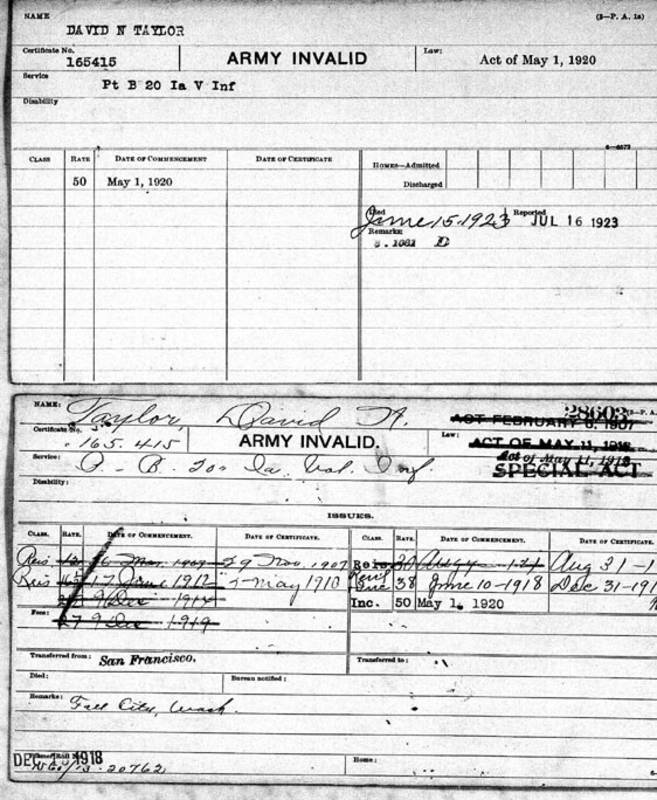 NAME
DAVID N TAYLOR
(3—P. A. 1a)
Certificate No.
165415
ARMY INVALID
Law:
Act of May 1, 1920
Service
Pt B 20 Ia V Inf
Disability
CLASS RATE DATE OF COMMENCEMENT DATE OF CERTIFICATE
HOMES—Admitted
Discharged
50 May 1, 1920
Died
June 15, 1923
Reported
JUL 16 1923
Remarks:
NAME:
Taylor, David N.
28603
ACT FEBRUARY 6, 1907
Certificate No.
165.415
ARMY INVALID.
Law:
ACT OF MAY 11, 1912
Act of May 11, 1912
SPECIAL ACT
Service:
B. 20 Ia. Vol. Inf
Disability:
ISSUES.
CLASS. RATE. DATE OF COMMENCEMENT. DATE OF CERTIFICATE. CLASS. RATE. DATE OF COMMENCEMENT. DATE OF CERTIFICATE.
Reis 12 1907 29 Nov. 1907 Reis 30 Aug 31-1
Reis 17 June 1912 May 1913 38 June 10-1918 Dec 31-191
27 9 Dec 1914 Inc. 50 May 1, 1920
Fees:
27 9 Dec 1919
Transferred from: San Francisco.
Transferred to:
Died:
Bureau notified:
Remarks:
Fall City, Wash.
DEC 1918
20762
Home: